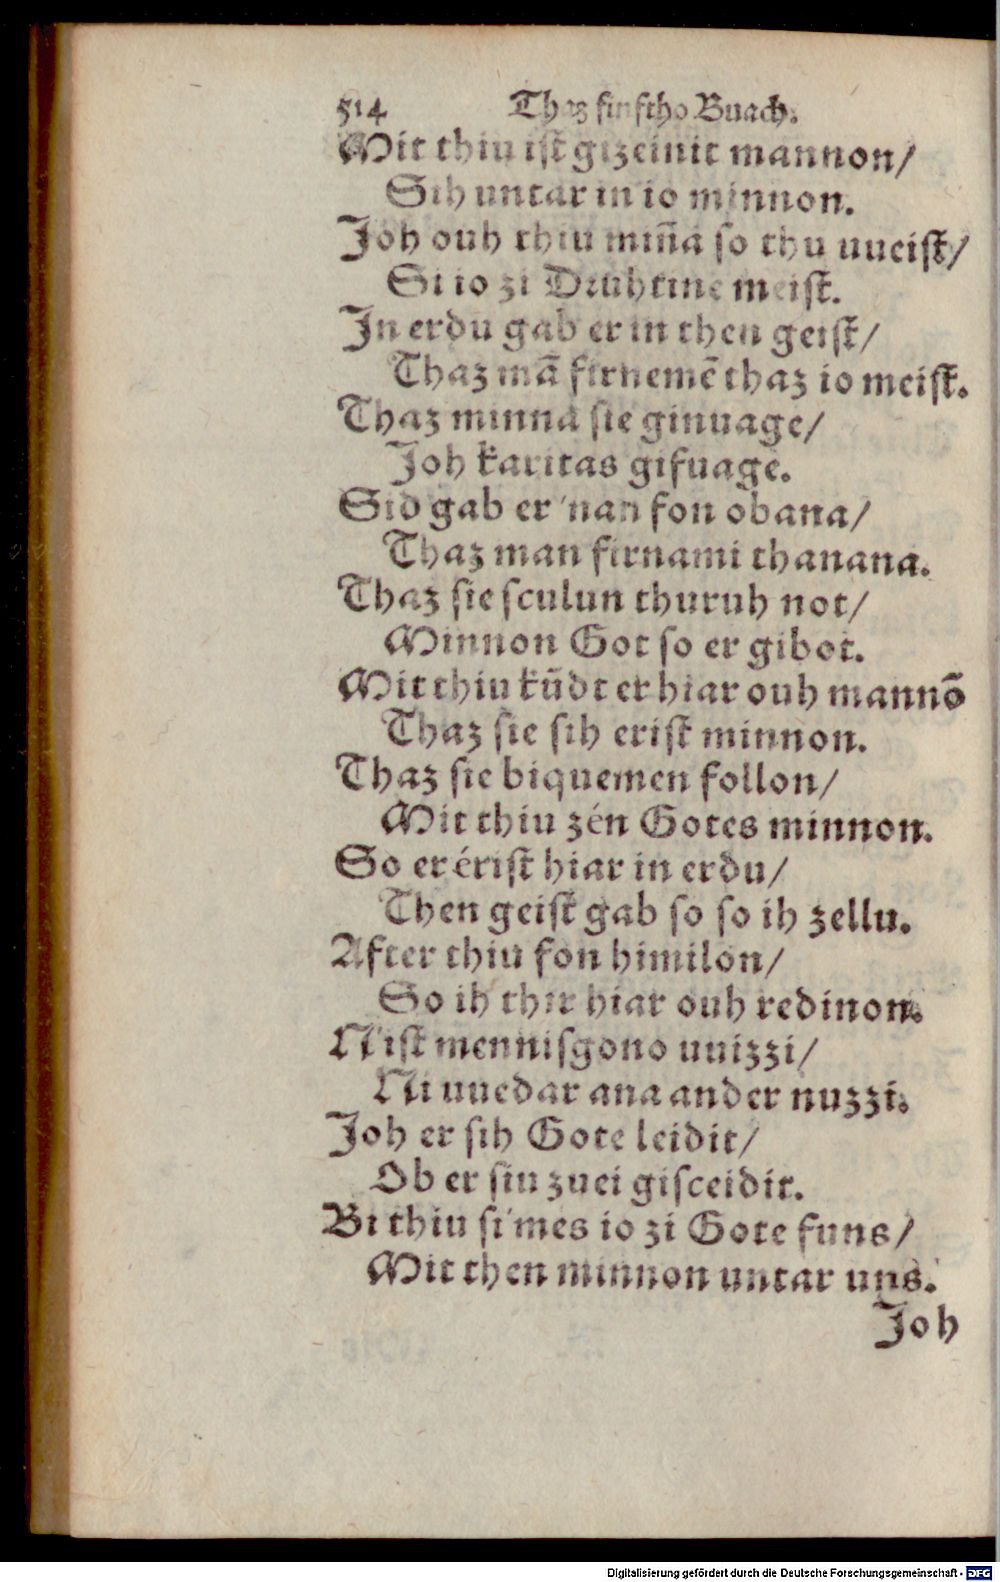 514 Thaz finftho Buach.
Mit thiu ist gizeinit mannon/
Sih untar in io minnon.
Joh ouh thiu miña so thu uueist/
Si io zi Druhtine meist.
In erdu gab er in then geist/
Thaz mã firnemẽ thaz io meist.
Thaz minna sie ginuage/
Joh karitas gifuage.
Sid gab er 'nan fon obana/
Thaz man firnami thanana.
Thaz sie sculun thuruh not/
Minnon Got so er gibot.
Mit thiu kũdt er hiar ouh mannõ
Thaz sie sih erist minnon.
Thaz sie biquemen follon/
Mit thiu zén Gotes minnon.
So er érist hiar in erdu/
Then geist gab so so ih zellu.
After thiu fon himilon/
So ih thir hiar ouh redinon.
N'ist mennisgono uuizzi/
Ni uuedar ana ander nuzzi.
Joh er sih Gote leidit/
Ob er siu zuei gisceidit.
Bi thiu si'mes io zi Gote funs/
Mit then minnon untar uns.
Joh
Digitalisierung gefördert durch die Deutsche Forschungsgemeinschaft - DFG